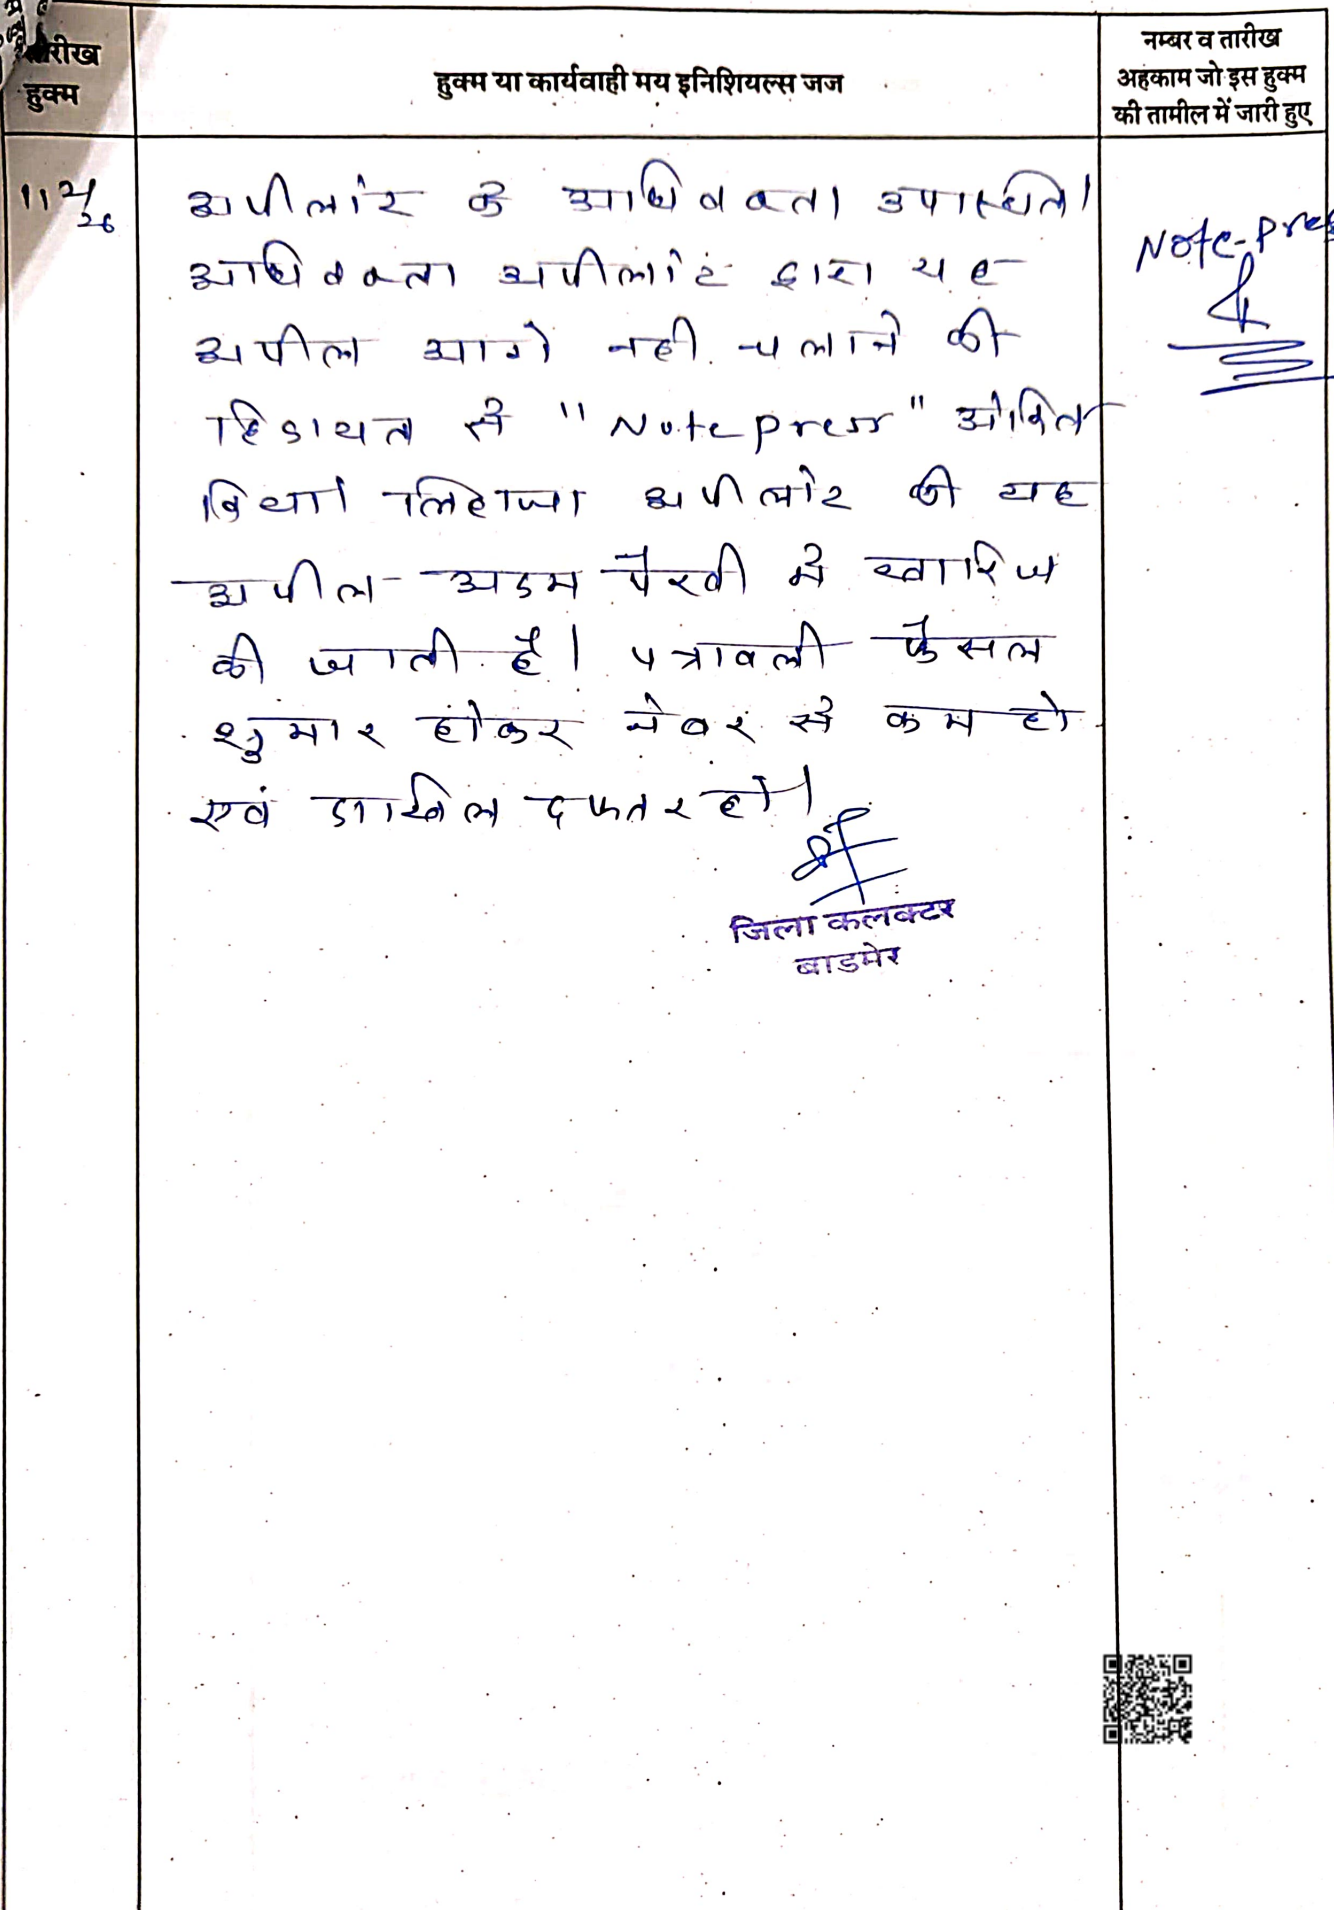 तारीख
हुक्म
हुक्म या कार्यवाही मय इनिशियल्स जज
नम्बर व तारीख
अहकाम जो इस हुक्म
की तामील में जारी हुए
अपीलांट के अधिवक्ता उपस्थित।
अधिवक्ता अपीलांट द्वारा यह
अपील आगे नही चलाने की
हिदायत से "Note press" अंकित
किया। लिहाजा अपीलांट की यह
अपील अदम पैरवी मे खारिज
की जाती है। पत्रावली फैसल
शुमार होकर नंबर से कम हो
एवं दाखिल दफ्तर हो।
Note-Pres
जिला कलक्टर
बाडमेर